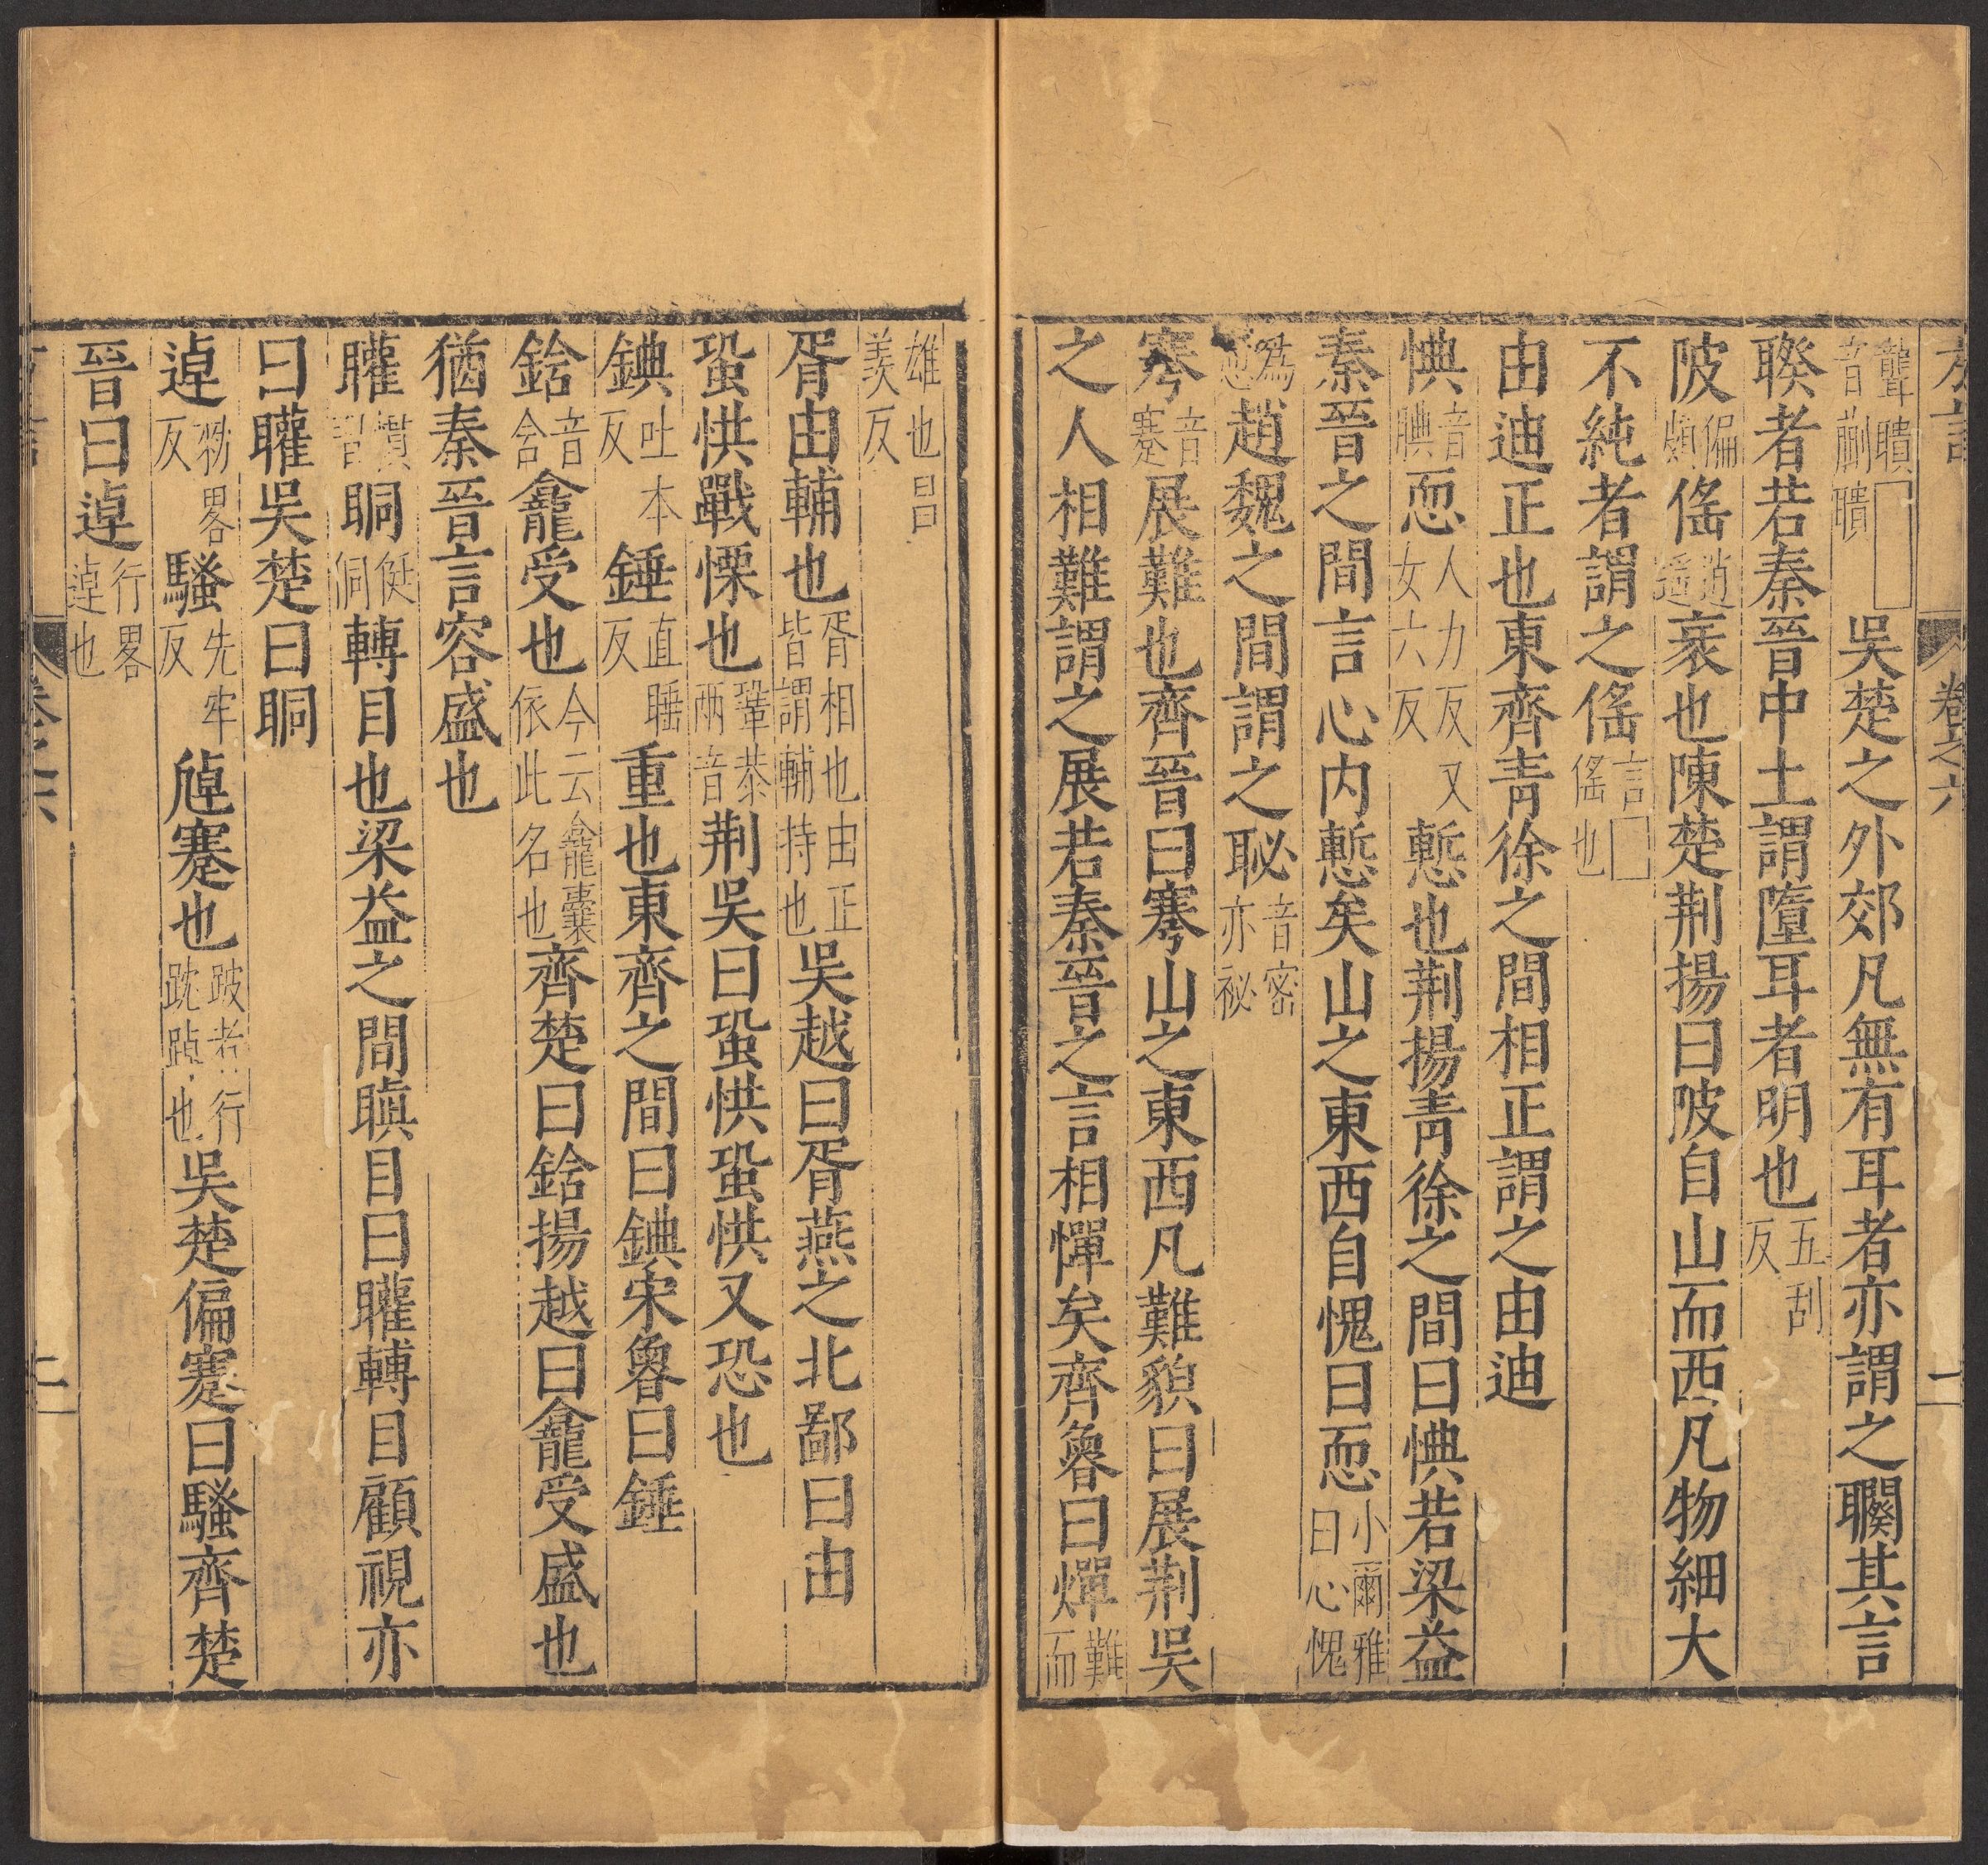 方言
卷之六
二
聾聵□音蒯聵吳楚之外郊凡無有耳者亦謂之䦱其言
聧者若秦晉中土謂墮耳者明也五刮反
陂偏頗傜逍遥衺也陳楚荆揚曰陂自山而西凡物細大
不純者謂之傜言□傜也
由迪正也東齊青徐之間相正謂之由迪
㥏音腆恧人力反又女六反慙也荆揚青徐之間曰㥏若梁益
秦晉之間言心内慙矣山之東西自愧曰恧小爾雅曰心愧
爲恧趙魏之間謂之恥音密亦祕
㝿音蹇展難也齊晉曰㝿山之東西凡難貌曰展荆吳
之人相難謂之展若秦晉之言相憚矣齊魯曰燀難而
雄也昌羨反
胥由輔也胥相也由正皆謂輔持也吳越曰胥燕之北鄙曰由
蛩㤨戰慄也鞏恭兩音荆吳曰蛩㤨蛩㤨又恐也
錪吐本反錘直睡反重也東齊之間曰錪宋魯曰錘
鋡音含龕受也今云龕囊依此名也齊楚曰鋡揚越曰龕受盛也
猶秦晉言容盛也
矔慣習眮侹侗轉目也梁益之間瞋目曰矔轉目顧視亦
曰矔吳楚曰眮
逴勑略反騷先牢反𡯴蹇也跛者行跣踔也吳楚偏蹇曰騷齊楚
晉曰逴行畧逴也
卷之六
二